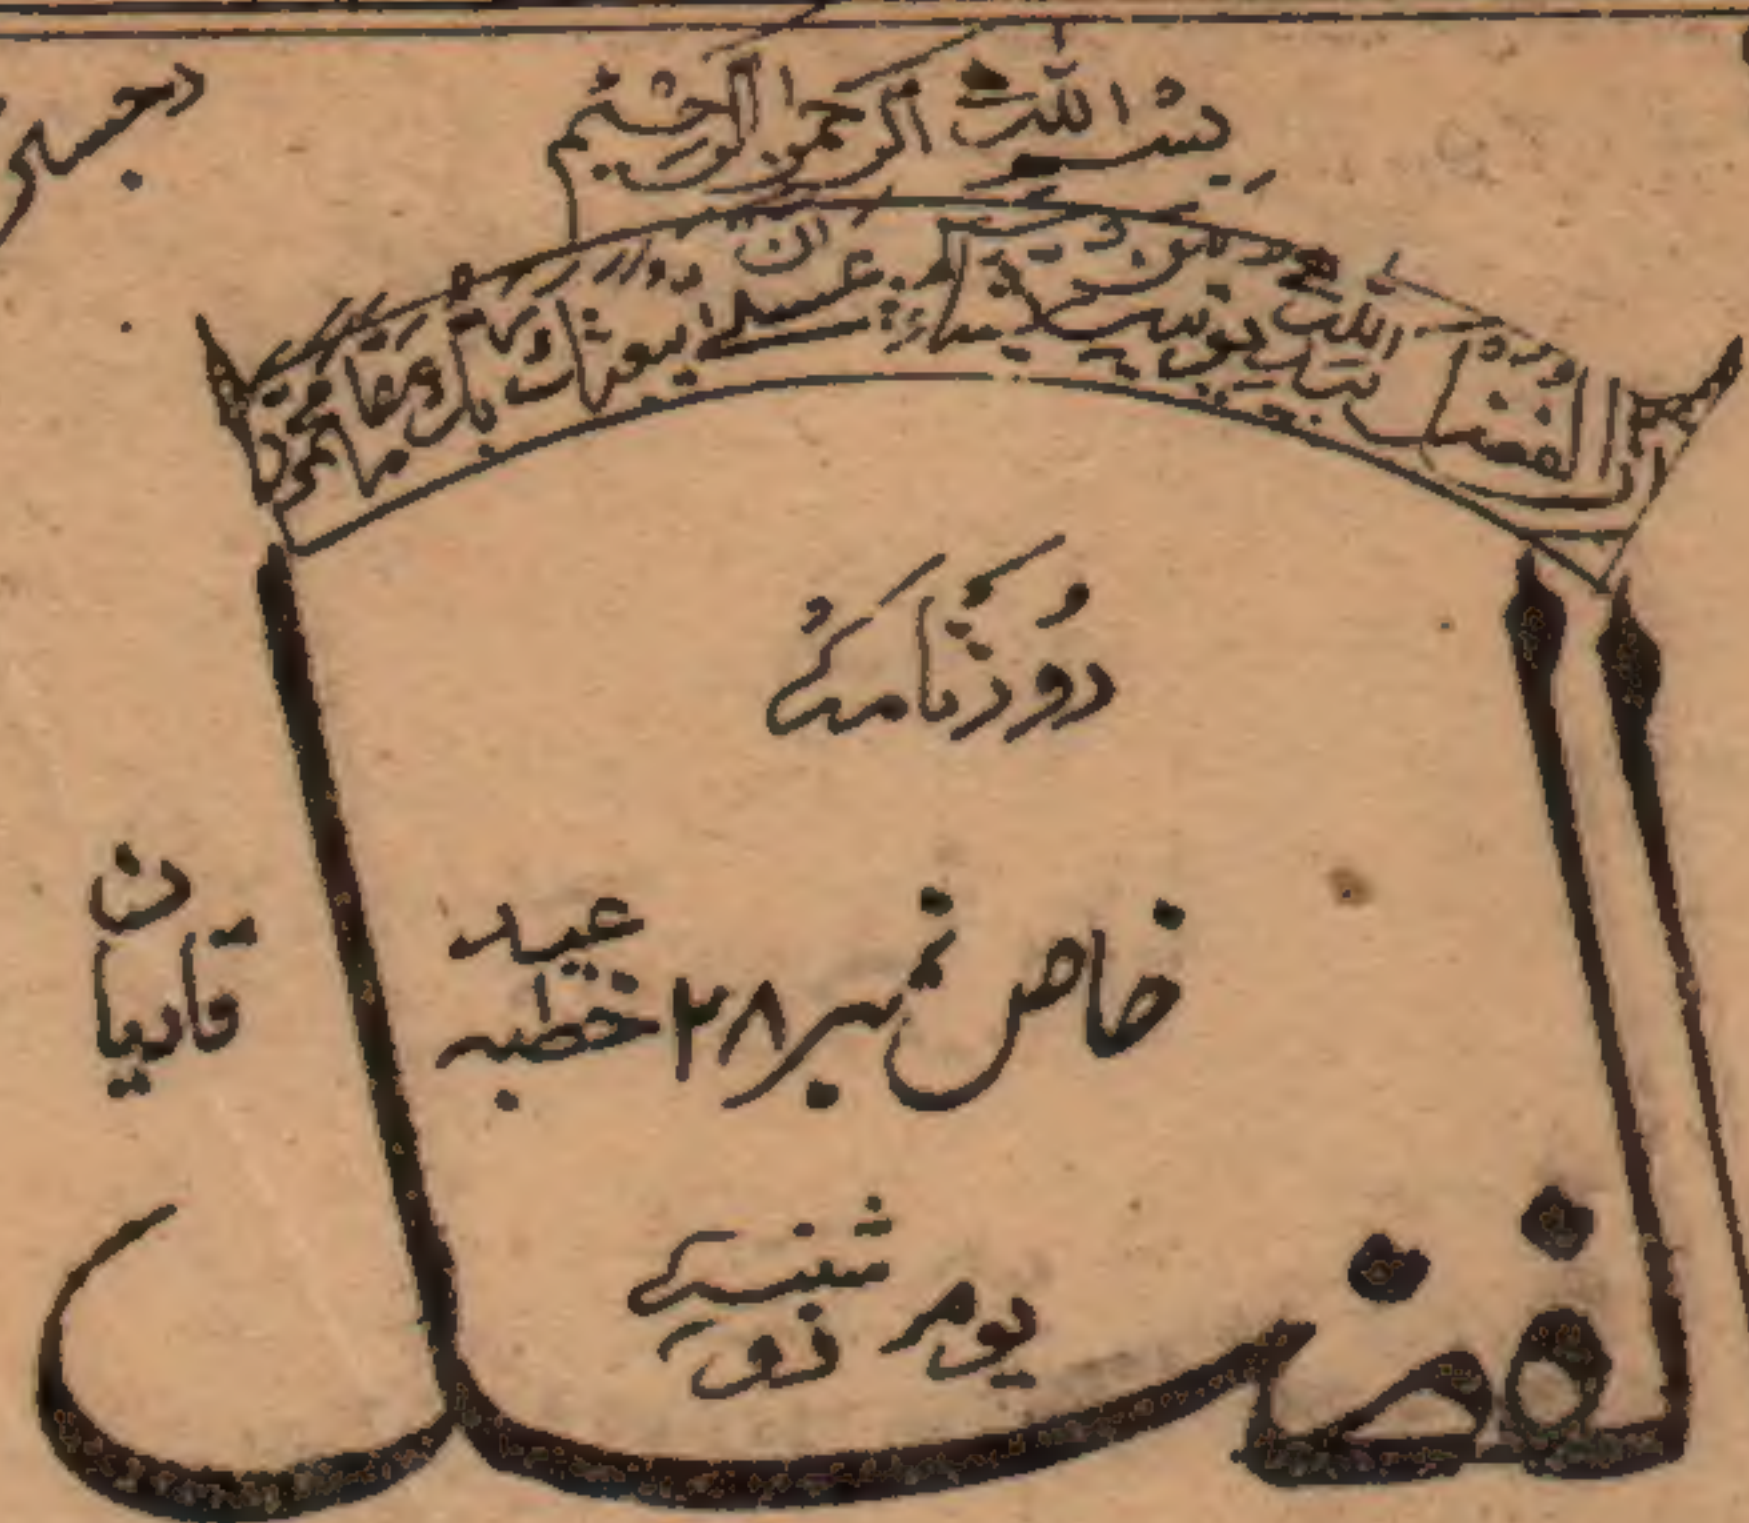 بِسْمِ اللّٰهِ الرَّحْمٰنِ الرَّحِيْمِ
اِنَّ الْفَضْلَ بِيَدِ اللّٰهِ يُؤْتِيْهِ مَنْ يَّشَآءُ عَسٰى اَنْ يَّبْعَثَكَ رَبُّكَ مَقَامًا مَّحْمُوْدًا
روزنامہ
خاص نمبر ۲۸ خطبہ عید
قادیان
یوم شنبہ
الفضل